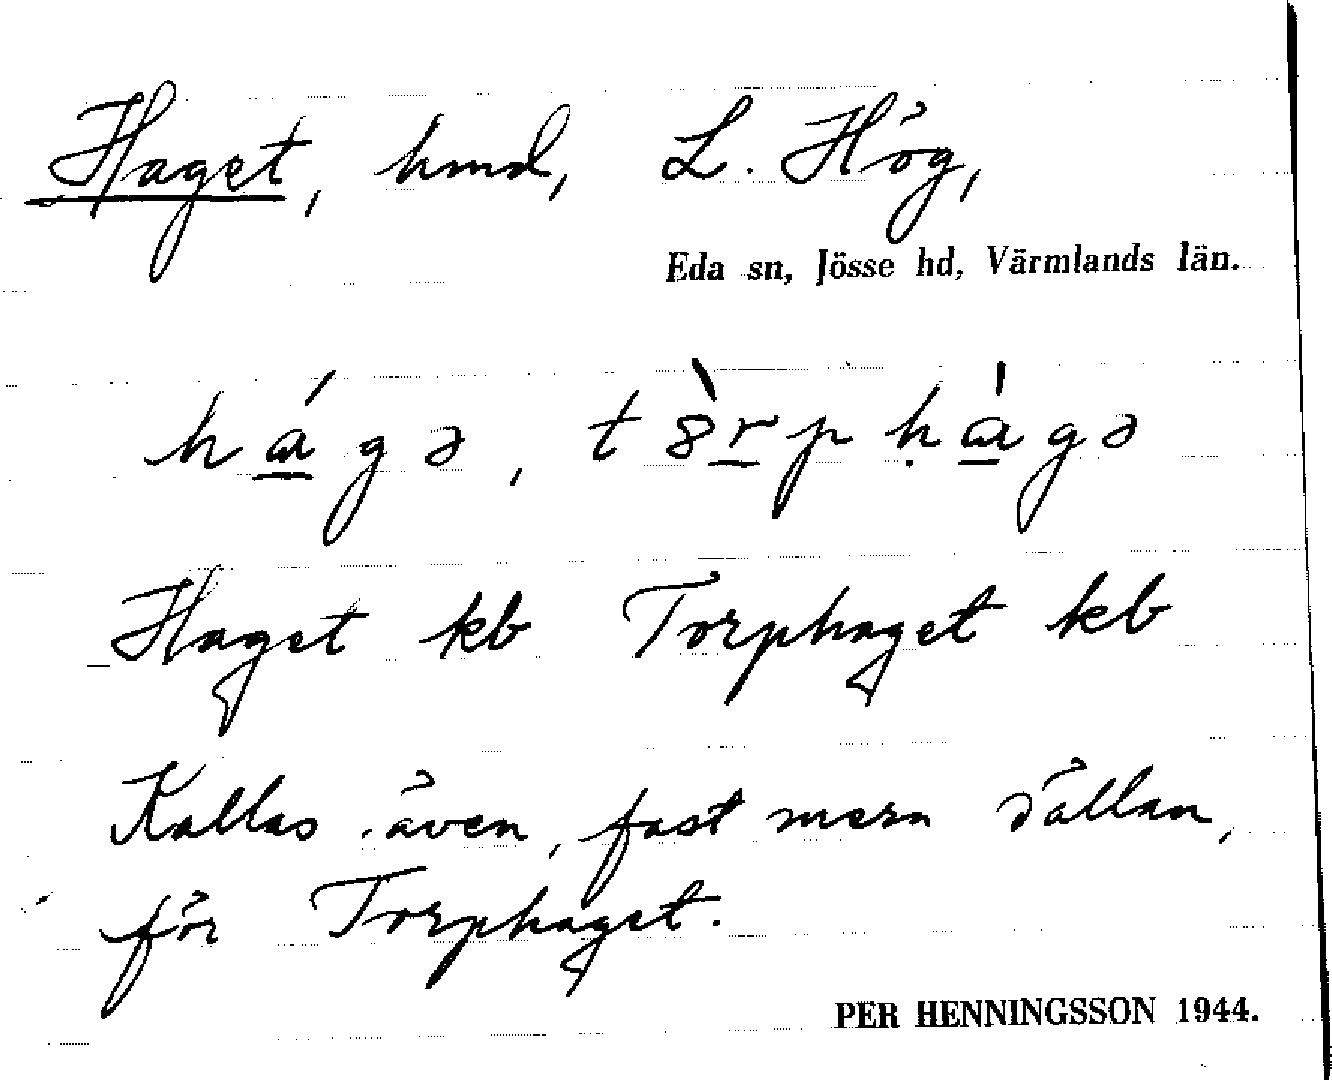 Haget, hmd, L. Hög,
Eda sn, Jösse hd, Värmlands län.
há̱gə, tò̱rpḥà̱gə
Haget kb Torphaget kb
Kallas även, fast mera sällan,
för Torphaget.
PER HENNINGSSON 1944.